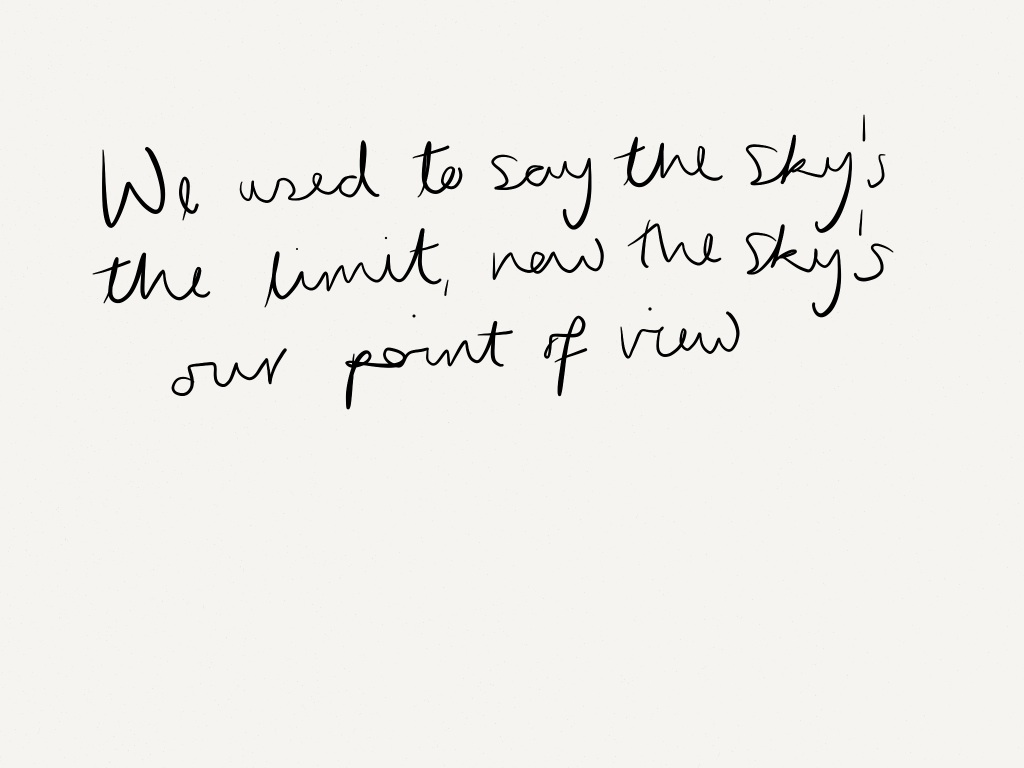 We used to say the sky's
the limit, now the sky's
our point of view